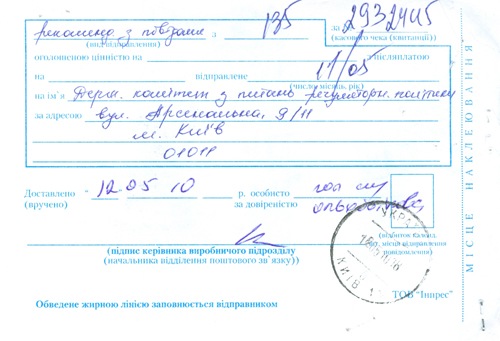 рекоменд з повідомл з 135 за 2932445
(вид відправлення) (касового чека (квитанції))
оголошеною цінністю на післяплатою
на відправлене 11/05
(число, місяць, рік)
на ім'я Держ. комітет з питань регуляторн. політики
за адресою вул. Арсенальна, 9/11
м. Київ
01011
МІСЦЕ НАКЛЕЮВАННЯ
Доставлено 12 05 10 р. особисто
(вручено) за довіреністю
(відбиток календ.
місця відправлення
повідомлення)
УКРА
КИЇВ
(підпис керівника виробничого підрозділу
(начальника відділення поштового зв'язку))
ТОВ "Інпрес"
Обведене жирною лінією заповнюється відправником